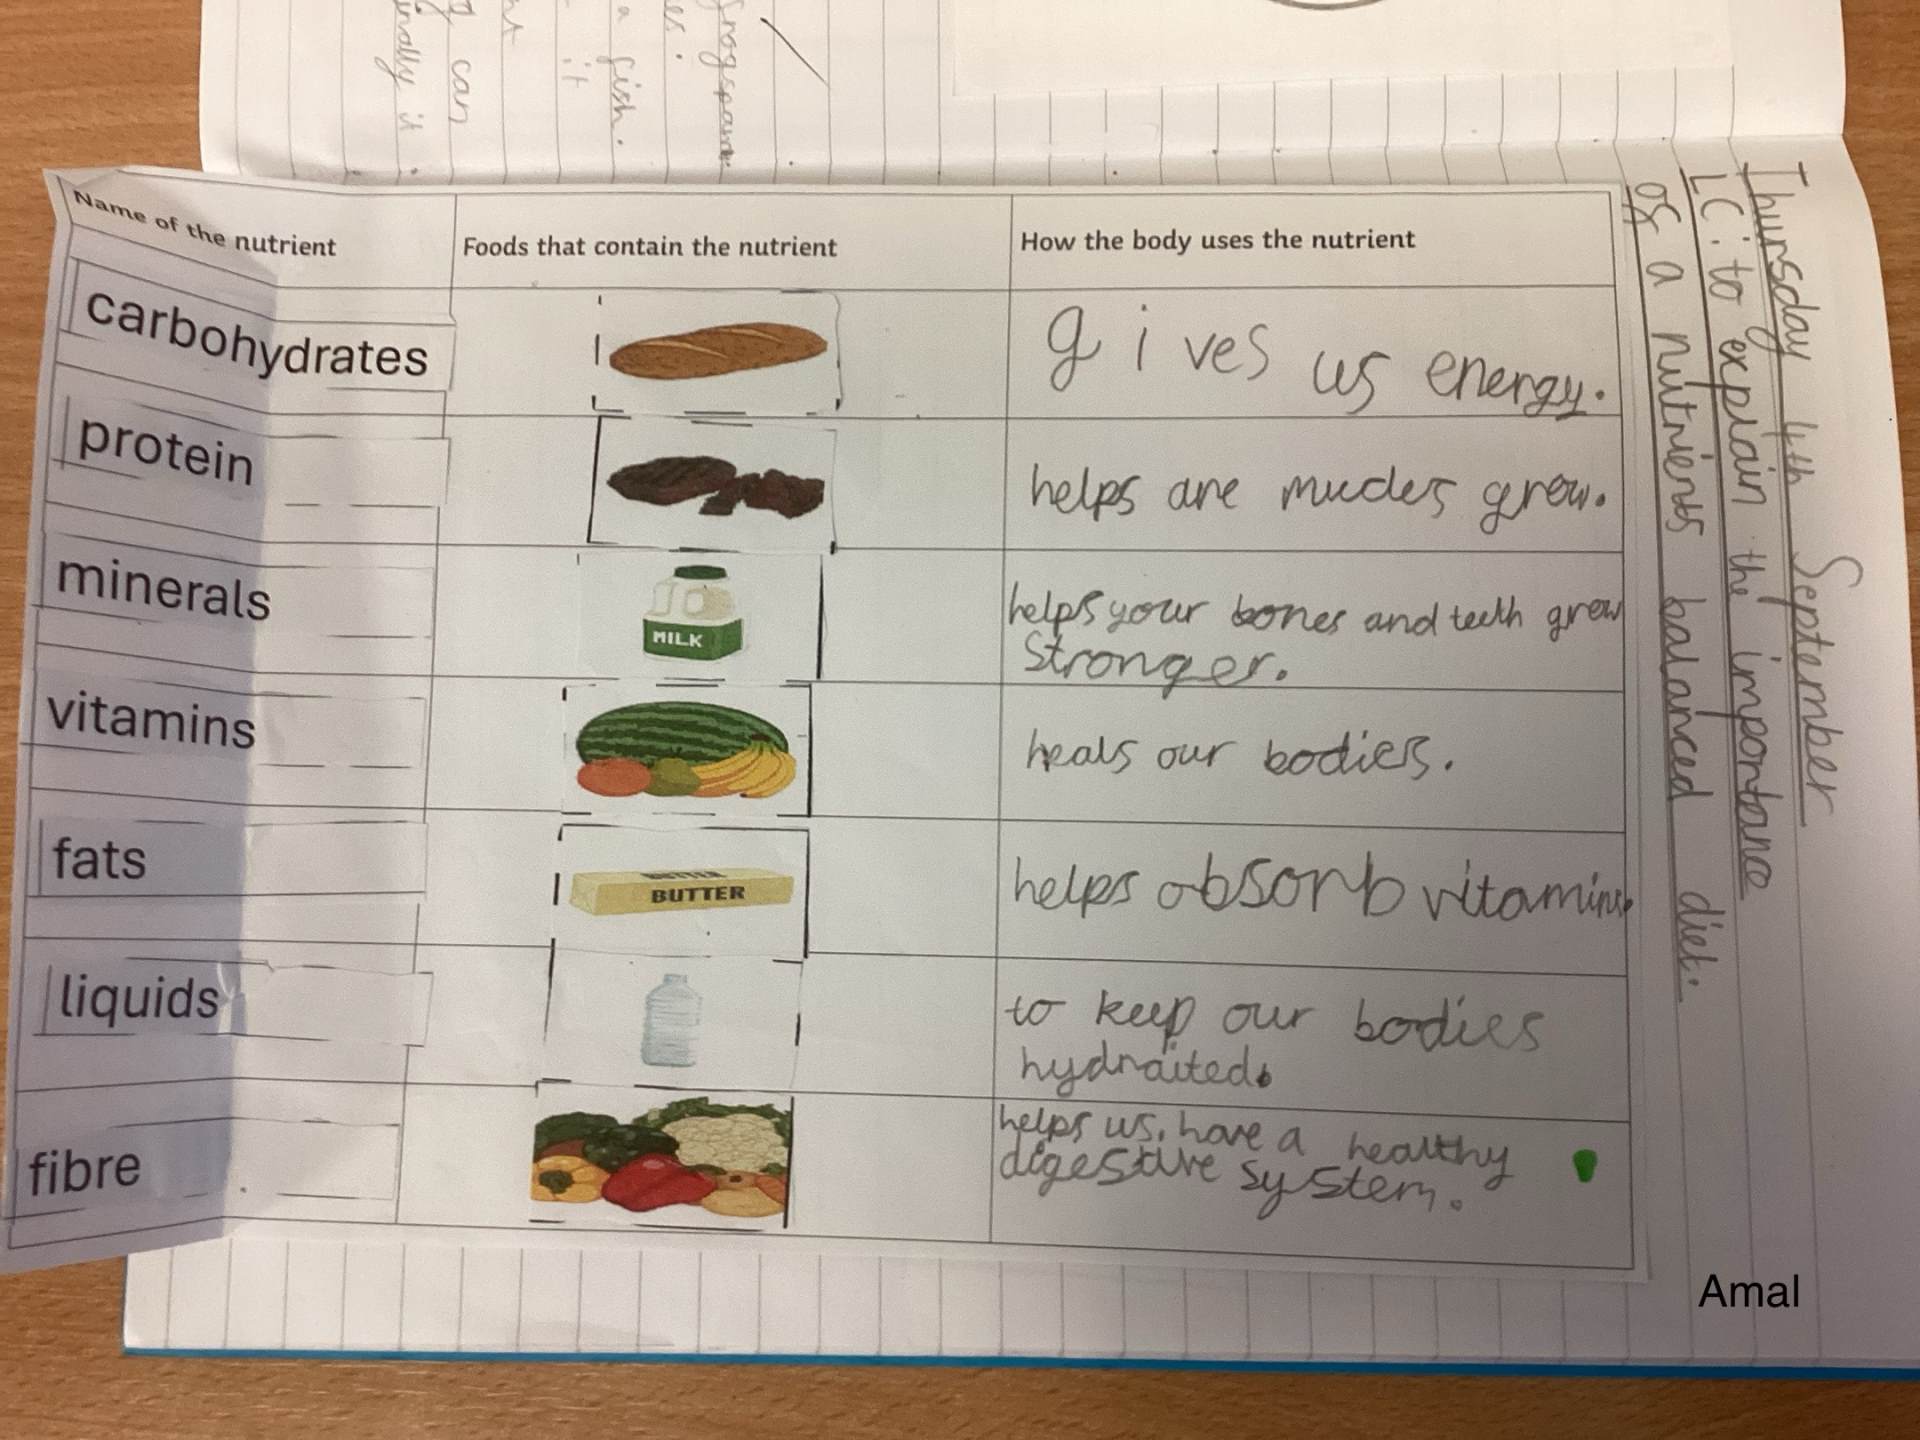 Thursday 4th September
LC: to explain the importance
of a nutrients balanced diet.
Name of the nutrient
Foods that contain the nutrient
How the body uses the nutrient
carbohydrates
gives us energy.
protein
helps are mucles grow.
minerals
MILK
helps your bones and teeth grow
stronger.
vitamins
heals our bodies.
fats
BUTTER
helps absorb vitamins.
liquids
to keep our bodies
hydraited.
fibre
helps us have a healthy
digestive system.
Amal
frogspawn
a fish.
it
can
it